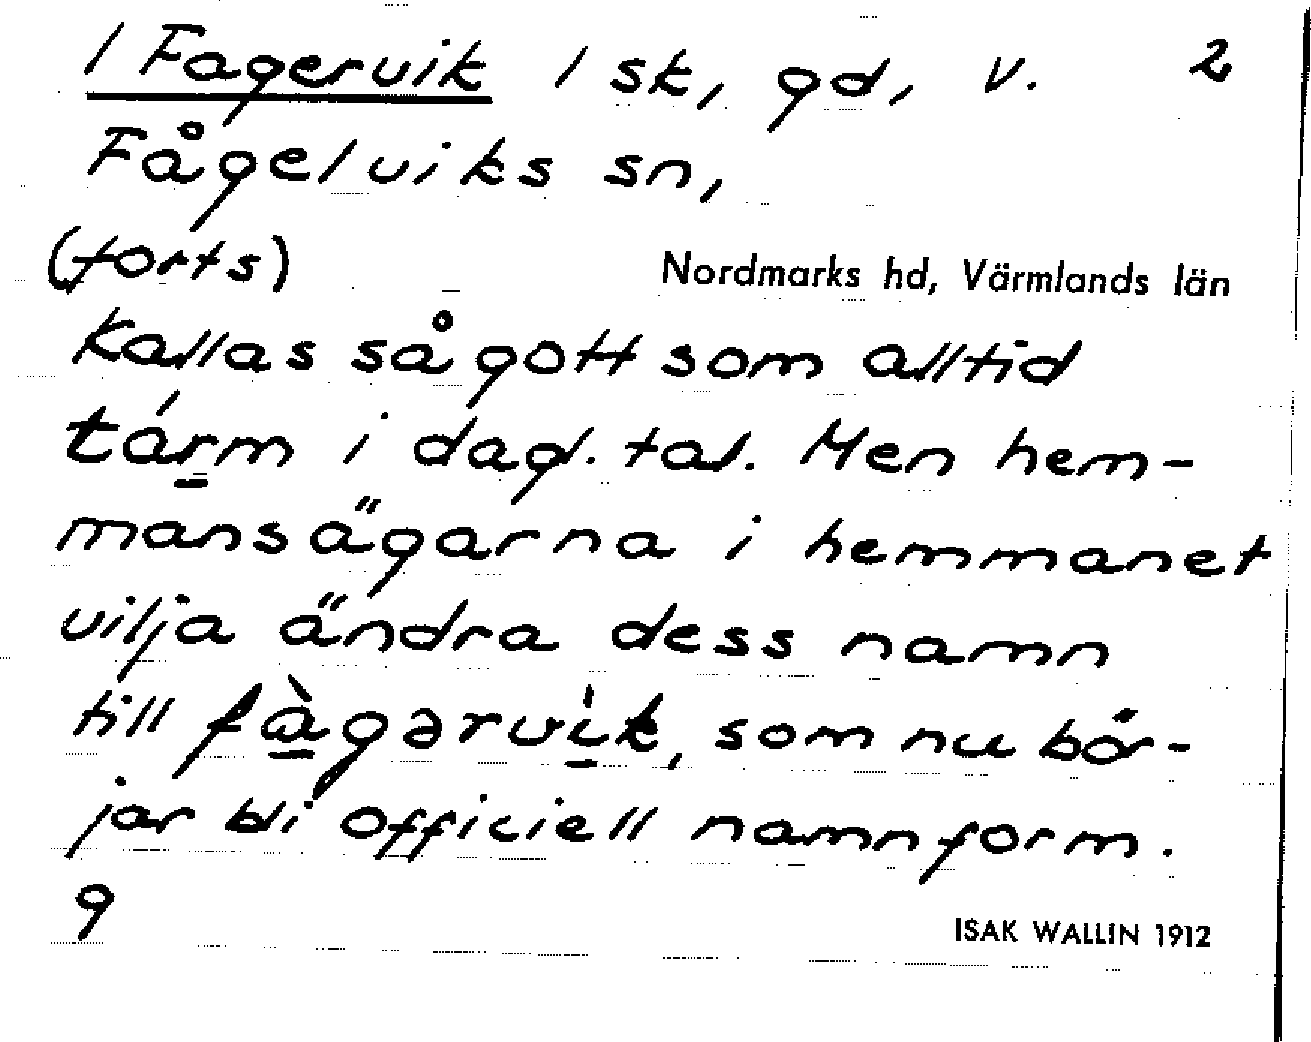 / Fagervik / sk, gd, v. 2
Fågelviks sn,
(forts)
Nordmarks hd, Värmlands län
Kallas så gott som alltid
tárm i dagl. tal. Men hem-
mansägarna i hemmanet
vilja ändra dess namn
till fàgərvìk, som nu bör-
jar bli officiell namnform.
9
ISAK WALLIN 1912